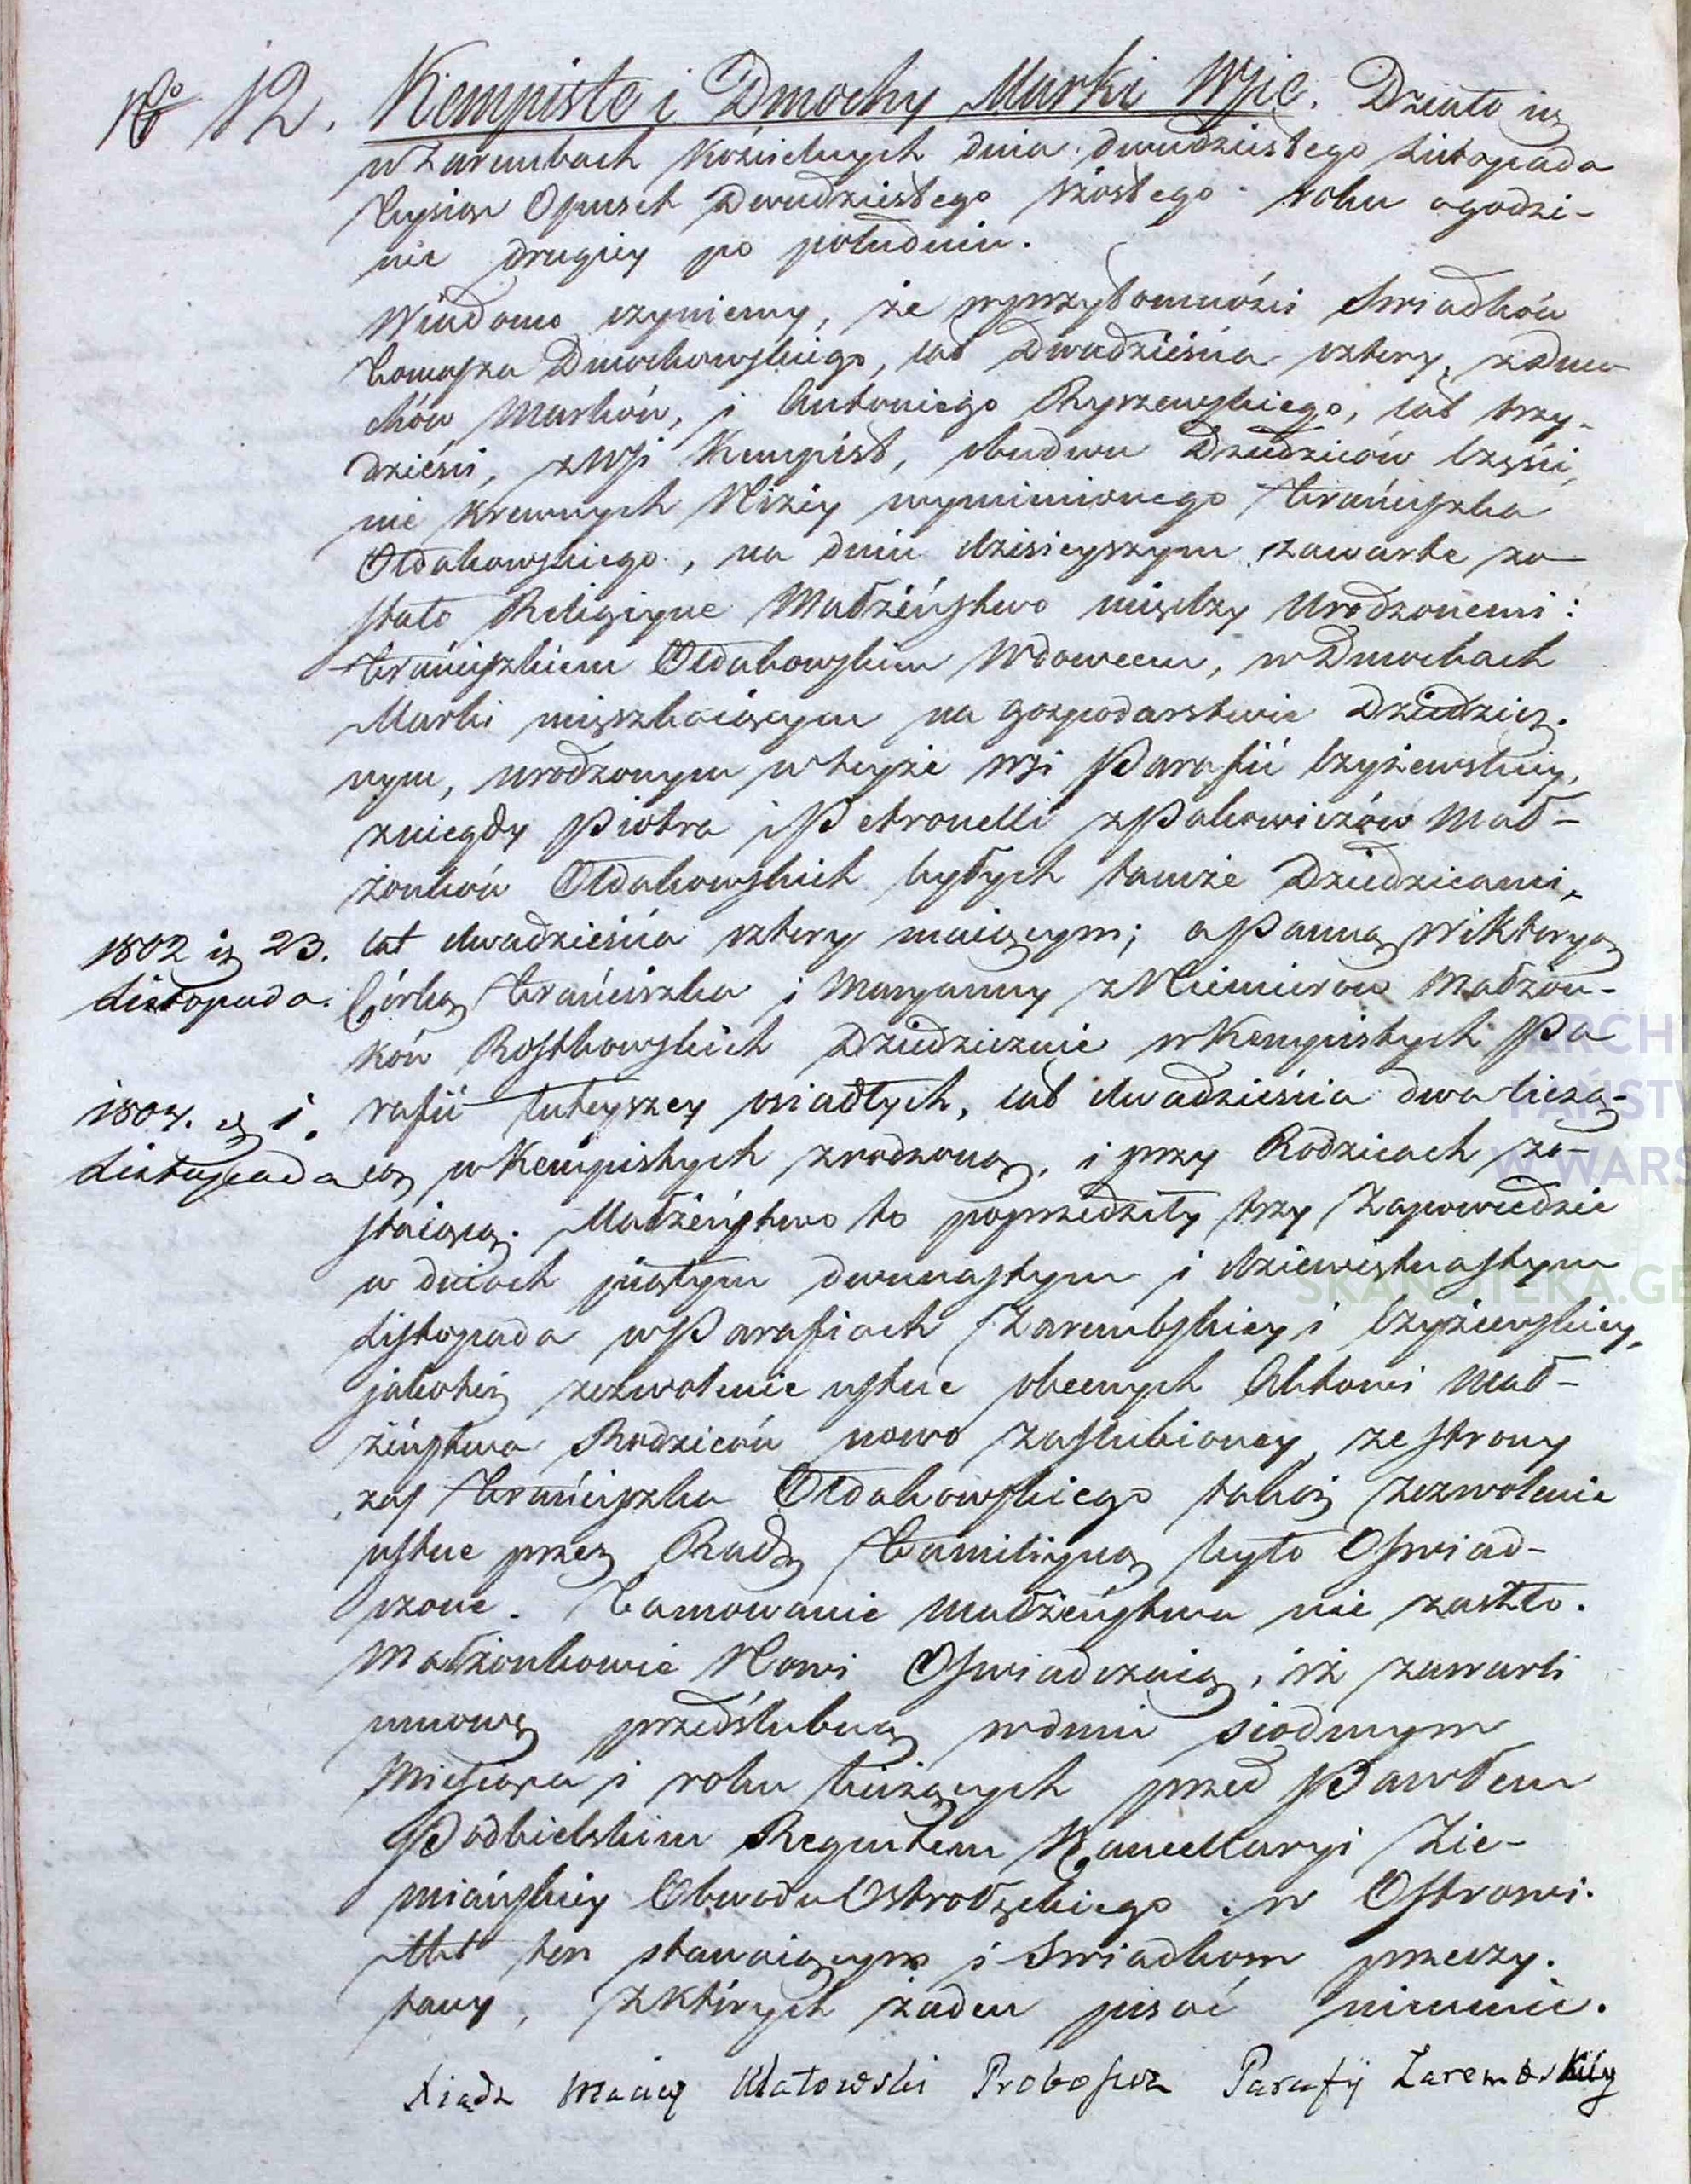 No 12. Kempiste i Dmochy Murki Wsie. Działo się
w Zarembach Kościelnych dnia dwudziestego Listopada
Tysiąc Ośmset Dwudziestego szóstego roku o godzi-
nie drugiey po południu.
Wiadomo czyniemy, że w przytomności Swiadków
Tomasza Dmochowskiego, lat Dwadzieścia cztery, z Dmo-
chów Murków, i Antoniego Ryszewskiego, lat trzy-
dzieści, z Wsi Kempist, obudwu Dziedziców Części,
nie krewnych Niżey wymienionego Franciszka
Ołdakowskiego, na dniu dzisieyszym zawarte zo-
stało Religiyne Małżeństwo między Urodzonemi:
Franciszkiem Ołdakowskim Wdowcem, w Dmochach
Murki mięszkaiącym na gospodarstwie Dziedzicz-
nym, urodzonym w teyże wsi Parafii Czyżewskiey,
z niegdy Piotra i Petronelli z Pakowiczów Mał-
żonków Ołdakowskich byłych tamże Dziedzicami,
1802 is 23. lat dwadzieścia cztery maiącym; a Panną Wiktoryą
Listopada. Córką Franciszka i Maryanny z Niemirow Małżon-
ków Rostkowskich Dziedzicznie w Kempistych Pa
rafii tuteyszey osiadłych, lat dwadzieścia dwa liczą-
1804. is 1.
Listopada cą w Kempistych zrodzoną, i przy Rodzicach zo-
staiącą. Małżeństwo to poprzedziły trzy Zapowiedzie
w dniach piątym dwunastym i dziewiętnastym
Listopada w Parafiach Zarembskiey i Czyżewskiey,
jakoteż zezwolenie ustne obecnych Aktowi Mał-
żeństwa Rodziców nowo zaślubioney, ze strony
zaś Franciszka Ołdakowskiego takież zezwolenie
ustne przez Radę Familiyną było Oświad-
czone. Tamowanie małżeństwa nie zaszło.
Małżonkowie Nowi Oświadczaią, iż zawarli
umowę przedślubną w dniu siodmym
Miesiąca i roku bieżących przed Pawłem
Podbielskim Regentem Kancellaryi Zie-
miańskiey Obwodu Ostrołęckiego w Ostrowi.
Akt ten stawaiącym i Swiadkom przeczy-
tany, z których żaden pisać nieumie.
Xiądz Maciey Klatowski Proboszcz Parafij Zarembskiiy
ARCHI
PAŃSTW
W WARS
SKANOTEKA.GE